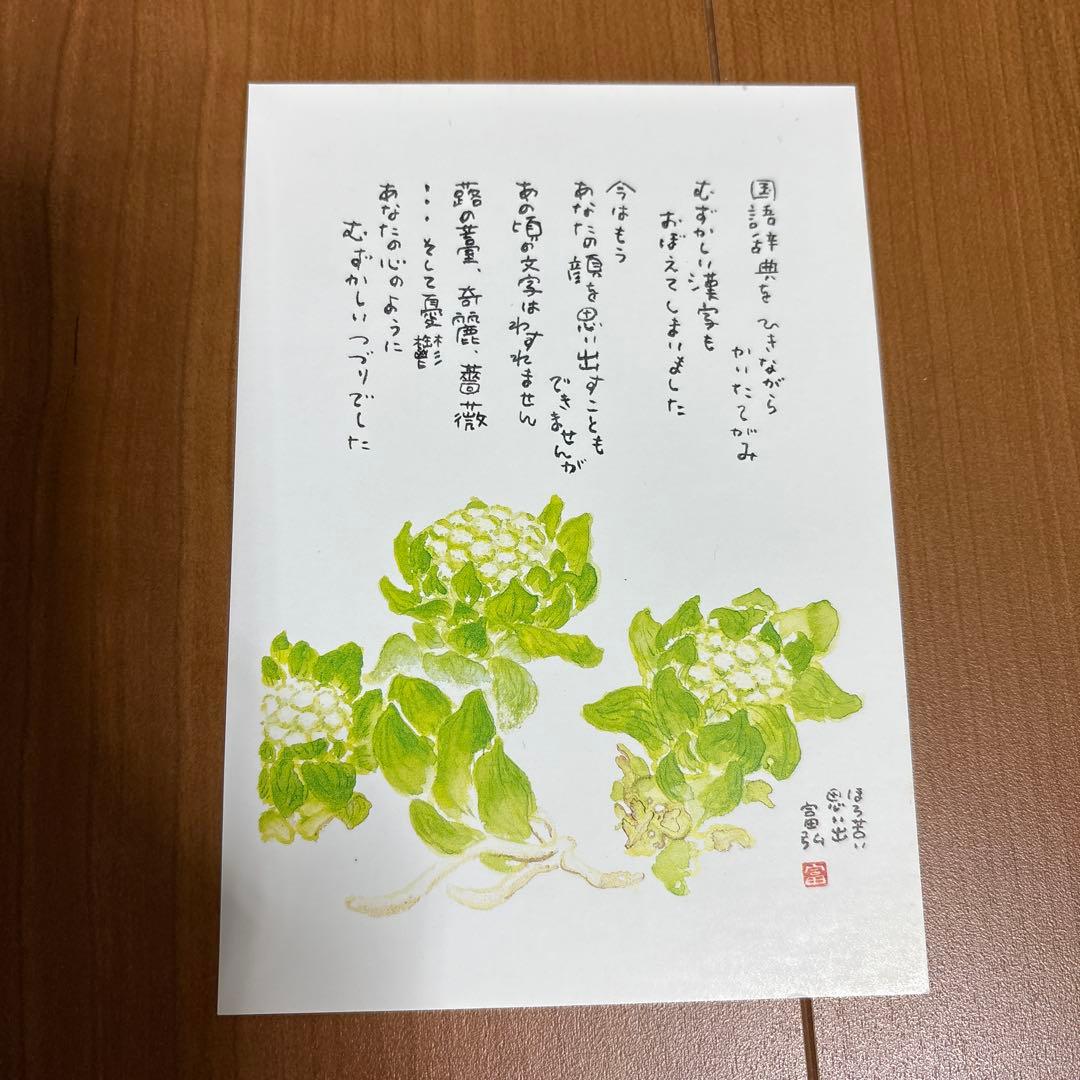 国語辞典を ひきながら
かいたてがみ
むずかしい漢字も
おぼえてしまいました
今はもう
あなたの顔を思い出すことも
できませんが
あの頃の文字はわすれません
蕗の薹、奇麗、薔薇
・・・そして憂鬱
あなたの心のように
むずかしいつづりでした
ほろ苦い
思い出
富弘
富